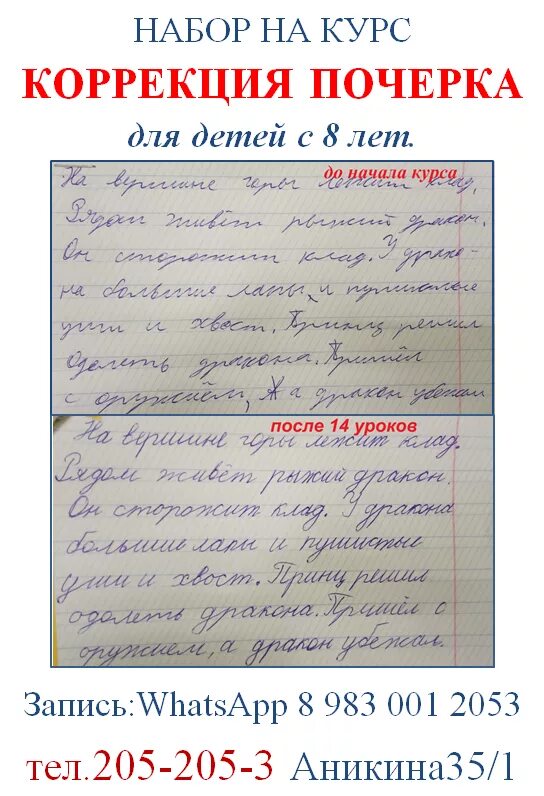 НАБОР НА КУРС
КОРРЕКЦИЯ ПОЧЕРКА
для детей с 8 лет.
до начала курса
На вершине горы лежит клад.
Рядом живёт рыжий дракон.
Он сторожит клад. У драко-
на большие лапы и пушистые
уши и хвост. Принц решил
одолеть дракона. Пришёл
с оружием, а дракон убежал
после 14 уроков
На вершине горы лежит клад.
Рядом живёт рыжий дракон.
Он сторожит клад. У дракона
большие лапы и пушистые
уши и хвост. Принц решил
одолеть дракона. Пришёл с
оружием, а дракон убежал.
Запись:WhatsApp 8 983 001 2053
тел.205-205-3 Аникина35/1